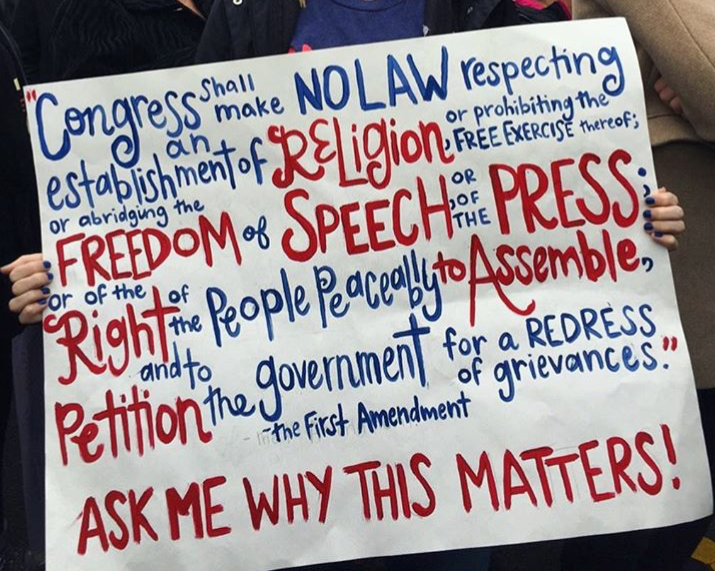 "Congress shall make NO LAW respecting
an establishment of RELigion, or prohibiting the FREE EXERCISE thereof;
or abridging the
FREEDOM of SPEECH, OR OF THE PRESS;
or of the Right of the People Peaceably to Assemble,
and to Petition the government for a REDRESS of grievances."
-the First Amendment
ASK ME WHY THIS MATTERS!